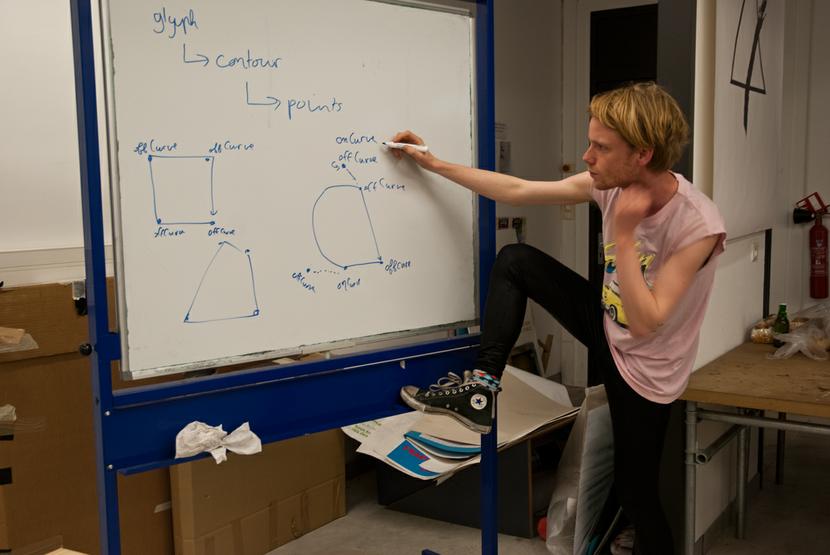 glyph
contour
points
onCurve
offCurve
offCurve offCurve
offCurve
offCurve offCurve
offCurve
offCurve
onCurve